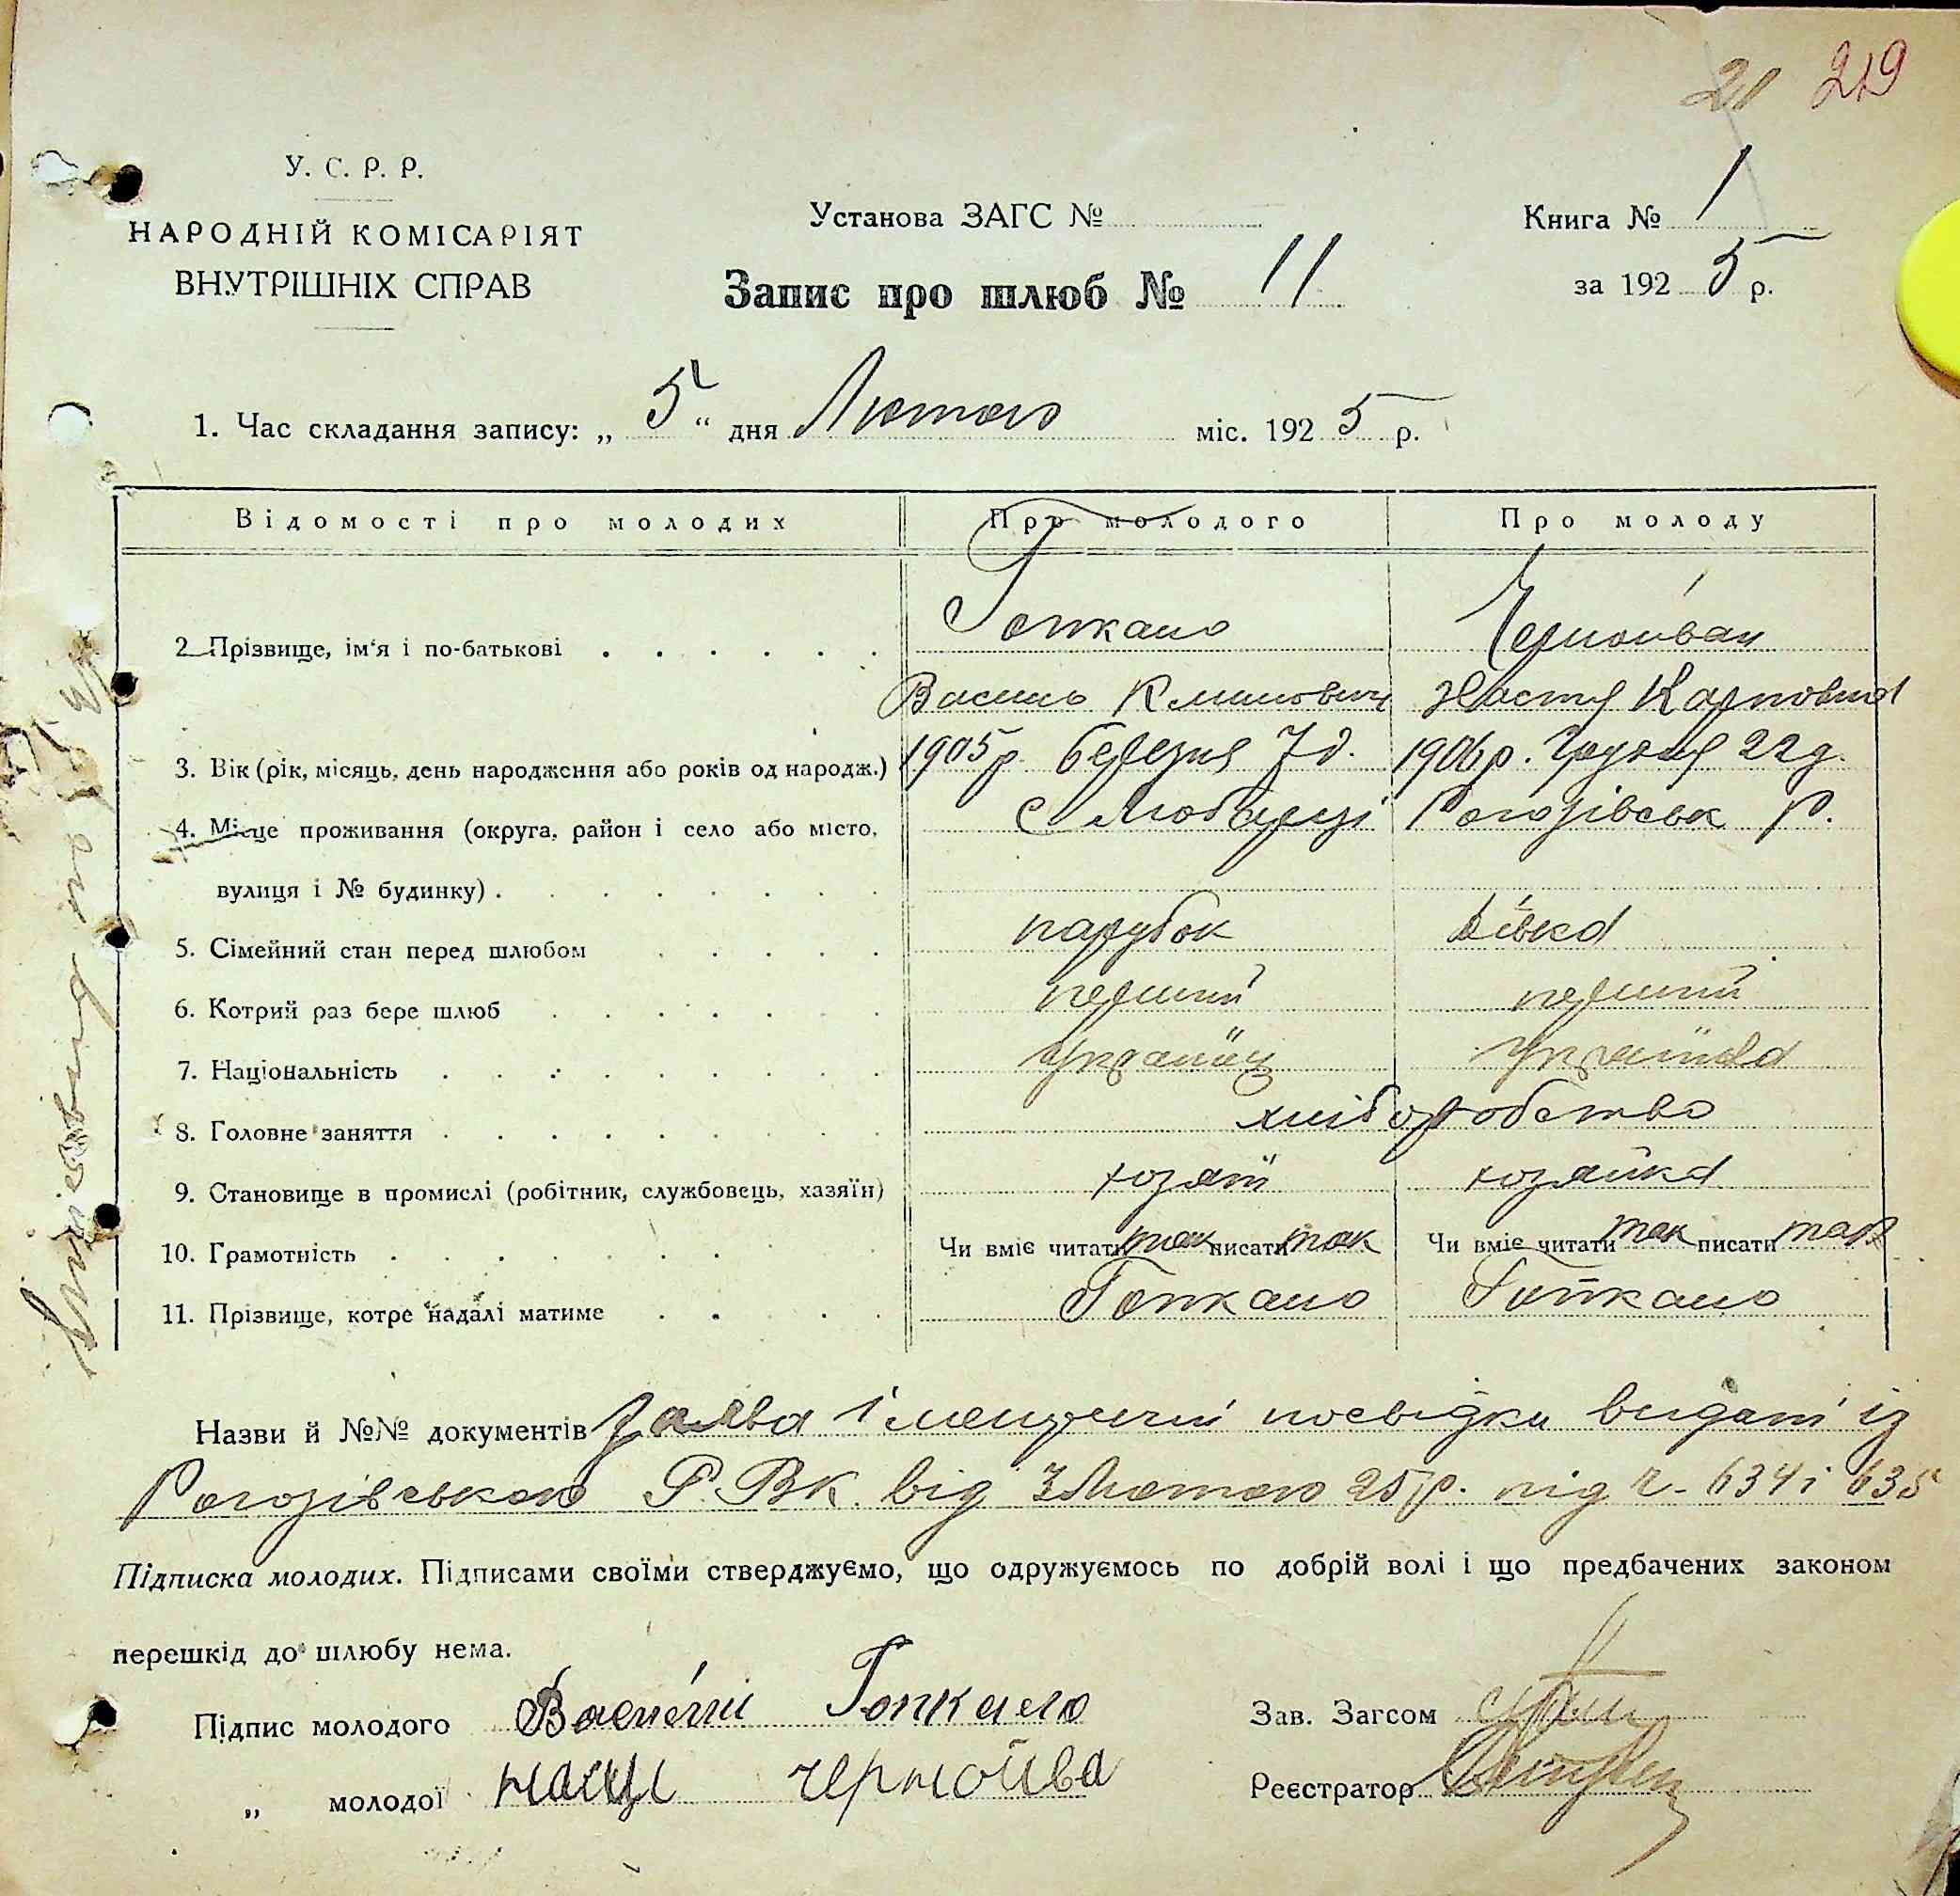 21 219
У. С. Р. Р.
НАРОДНІЙ КОМІСАРІЯТ
ВНУТРІШНІХ СПРАВ
Установа ЗАГС №
Запис про шлюб № 11
Книга № 1
за 192 5 р.
1. Час складання запису: „ 5 “ дня Лютого міс. 192 5 р.
Відомості про молодих Про молодого Про молоду
2. Прізвище, ім'я і по-батькові . . . . . . Гопкало Черноіван
Василь Климович Настя Карповна
3. Вік (рік, місяць, день народження або років од народж.) 1905 р. березня 7 д. 1906 р. Грудня 22 д.
4. Місце проживання (округа, район і село або місто, с Любарці Рогозівськ Р.
вулиця і № будинку) . . . . . . . .
5. Сімейний стан перед шлюбом . . . . . парубок дівка
6. Котрий раз бере шлюб . . . . . . . перший перший
7. Національність . . . . . . . . . Українець Українка
8. Головне заняття . . . . . . . . . хліборобство
9. Становище в промислі (робітник, службовець, хазяїн) хозяїн хозяйка
10. Грамотність . . . . . . . . Чи вміє читати так писати так Чи вміє читати так писати так
11. Прізвище, котре надалі матиме . . . . Гопкало Гопкало
Назви й №№ документів Заява і посвідки видані із
Рогозівського Р.В.К. від 3 Лютого 25 р. під ч. 634 і 635
Підписка молодих. Підписами своїми стверджуємо, що одружуємось по добрій волі і що предбачених законом
перешкід до шлюбу нема.
Підпис молодого Гопкало Зав. Загсом
„ молодої черноiва Реєстратор